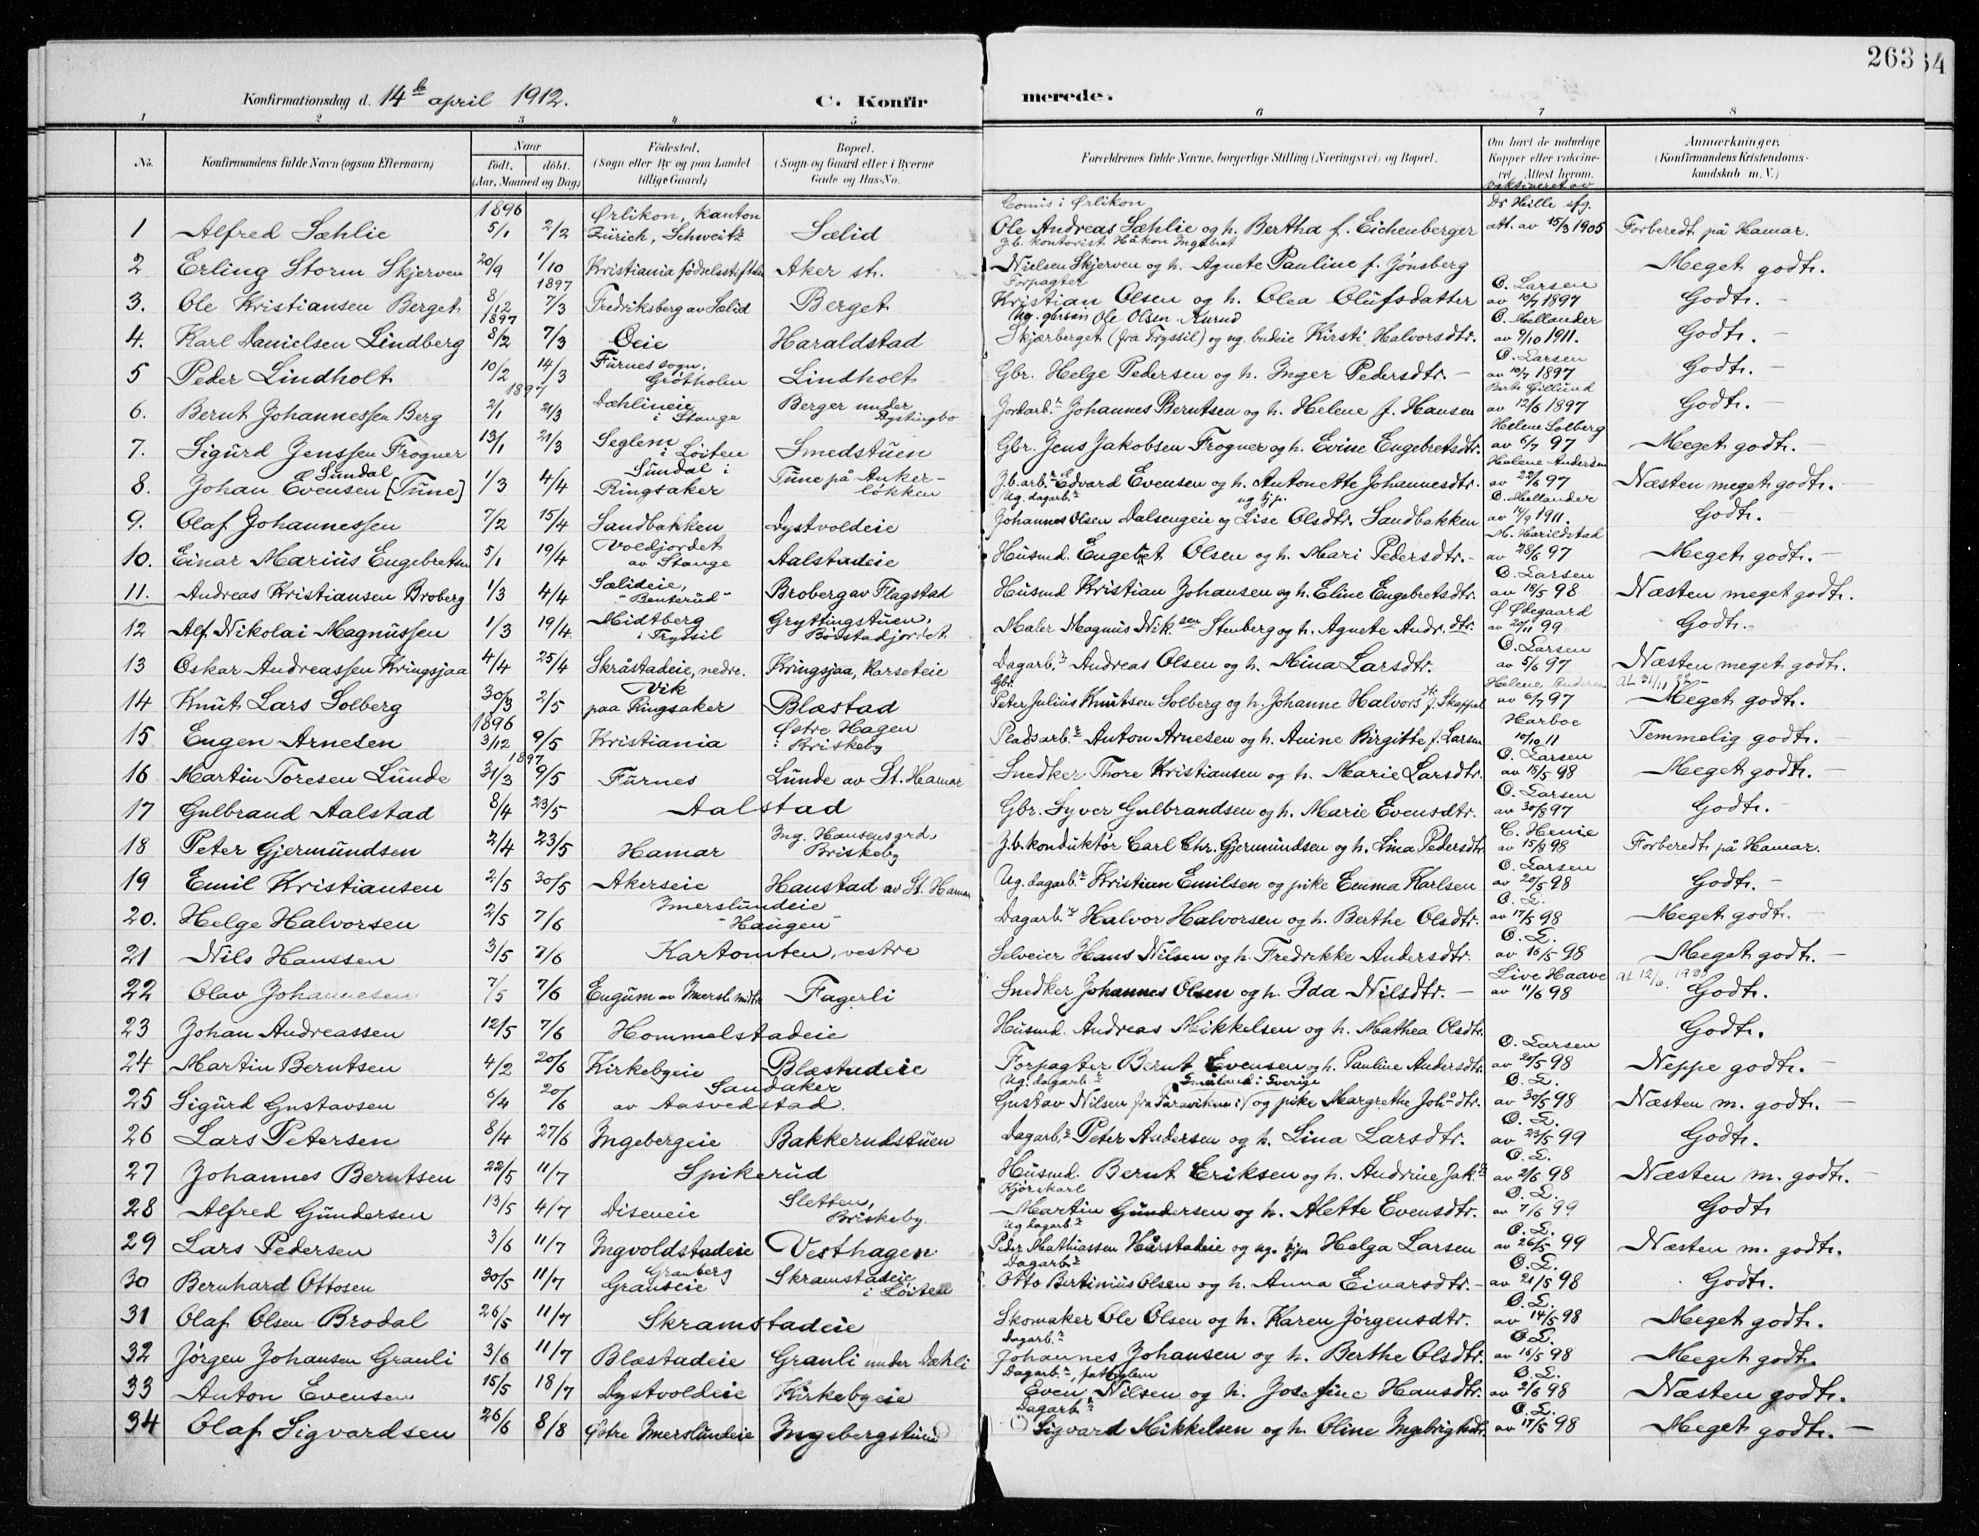 263
34
Konfirmationsdag d. 14de april 1912.
C. Konfirmerede.
1 2 3 4 5 6 7 8
No. Konfirmandens fulde Navn (ogsaa Efternavn) Naar født, døbt. (Aar, Maaned og Dag) Fødested. (Sogn eller By og paa Landet tillige Gaard) Bopæl. (Sogn og Gaard eller i Byerne Gade og Hus-No. Forældrenes fulde Navne, borgerlige Stilling (Næringsvei) og Bopæl. Om havt de naturlige Kopper eller vakcineret. Attest herom. Anmærkninger. (Konfirmandens Kristendomskundskab m. V.)
1 Alfred Sæhlie 1896 5/1 2/2 Ørlikon, kanton Zürich, Schweitz Sælid Comis i Ørlikon Ole Andreas Sæhlie og h. Bertha f. Eichenberger vaksineret av Dr Hille efg. att. av 15/3 1905 Forberedt på Hamar.
2 Erling Storm Skjerven 20/9 1/10 Kristiania fødselsstiftelse Aker st. Jb. kontorist Håkon Ingebret Nielsen Skjerven og h. Agnete Pauline f. Jønsberg Meget godt.
3. Ole Kristiansen Berget 8/12 1897 7/3 Fredriksberg av Sælid Berget Forpagter Kristian Olsen og h. Olea Olufsdatter O. Larsen av 10/7 1897 Godt.
4. Karl Danielsen Lindberg 1897 8/2 7/3 Oeie Haraldstad Ug. Ole Olsen Skjærberget (fra Tryssil) og ug. budeie Kirsti Halvorsdtr. O. Mellander av 9/10 1911. Godt.
5 Peder Lindholt 10/2 14/3 Furnes sogn, Grøtholm Lindholt Gbr. Helge Pedersen og h. Inger Pedersdtr. O. Larsen av 10/7 1897 Godt.
6. Bernt Johannessen Berg 1897 2/1 21/3 Dæhlineie i Stange Berger under Dystingbo Jordarb. Johannes Berntsen og h. Helene f. Hansen Berte Gillund av 12/6 1897 Godt.
7. Sigurd Jenssen Frogner 13/1 21/3 Seglem i Løiten Smedstuen Gbr. Jens Jakobsen Frogner og h. Evine Engebretsdtr. Helene Solberg av 6/7 97 Meget godt.
8. Johan Evensen Sundal [Tune] 1/3 4/4 Sundal i Ringsaker Tune på Ankerløkken J.b.arb. Edvard Evensen og h. Antonette Johannesdtr. Helene Andersen av 22/6 97 Næsten meget godt.
9. Olaf Johannessen 7/2 15/4 Sandbakken Dystvoldeie Ug. dagarb. Johannes Olsen Dalsengeie og ug tjp. Lise Olsdtr. Sandbakken O. Mellander av 14/9 1911. Godt.
10. Einar Marius Engebretsen 5/1 19/4 Voldjordet av Stange Aalstadeie Husmd. Engebret Olsen og h. Mari Pedersdtr. M. Harildstad av 28/6 97 Meget godt.
11. Andreas Kristiansen Broberg 1/3 4/4 Sælideie, "Benterud" Broberg av Flagstad Husmd Kristian Johansen og h. Eline Engebretsdtr. O. Larsen av 18/5 98 Næsten meget godt.
12 Alf. Nikolai Magnussen 1/3 19/4 Midtberg i Trysil Gryttingstuen, Bolstadjordet Maler Magnus Nik.sen Stenberg og h. Agnete Andr. dtr. O. Ødegaard av 20/11 99 Godt.
13 Oskar Andreassen Kringsjaa 4/4 25/4 Skråstadeie, nedre. Kringsjaa, Karseteie Dagarb. Andreas Olsen og h. Mina Larsdtr. O. Larsen av 5/6 97 Næsten meget godt.
14 Knut Lars Solberg 30/3 2/5 Vik paa Ringsaker Blæstad Gbr. Peter Julius Knutsen Solberg og h. Johanne Halvorsdtr. f. Skappel Helene Andersen av 6/7 97 Meget godt.
15 Eugen Arnesen 1896 3/12 9/5 Kristiania Østre Hagen i Briskeby Pladsarb. Anton Arnesen og h. Anine Birgitte f. Larsen Harboe 10/10 11 Temmelig godt.
16 Martin Toresen Lunde 1897 31/3 9/5 Furnes Lunde av St. Hamar Snedker Thore Kristiansen og h. Marie Larsdtr. O. Larsen av 18/5 98 Meget godt.
17 Gulbrand Aalstad 8/4 23/5 Aalstad Gbr. Syver Gulbrandsen og h. Marie Evensdtr. O. Larsen av 30/8 97 Godt.
18 Peter Gjermundsen 2/4 23/5 Hamar Ing. Hansensgrd. Briskeby J.b. konduktør Carl Chr. Gjermundsen og h. Lina Pedersdtr. C. Henie av 15/8 98 Forberedt på Hamar.
19 Emil Kristiansen 2/5 30/5 Akerseie Hanstad av St. Hamar Ug. dagarb. Kristian Emilsen og pike Emma Karlsen O. Larsen av 20/5 98 Godt.
20. Helge Halvorsen 2/5 7/6 Imerslundeie "Haugen" Dagarb. Halvor Halvorsen og h. Berthe Olsdtr. O. L. av 17/5 98 Meget godt.
21 Nils Hanssen 3/5 7/6 Kartomten, vestre Selveier Hans Nilsen og h. Fredrikke Andersdtr. O. L. av 16/5 98 Meget godt.
22 Olav Johannesen 7/5 7/6 Engum av Imersl. midtre Fagerli Snedker Johannes Olsen og h. Ida Nilsdtr. Live Haave av 11/6 98 Godt.
23 Johan Andreassen 12/5 7/6 Hommelstadeie Husmd. Andreas Mikkelsen og h. Mathea Olsdtr. Godt.
24 Martin Berntsen 4/2 20/6 Kirkebyeie Blæstadeie Forpagter Bernt Evensen og h. Pauline Andersdtr. O. Larsen av 20/5 98 Neppe godt.
25 Sigurd Gustavsen 6/4 20/6 Sandaker av Aasvedstad. Ug. dagarb. Gustav Nilsen fra Småland i Sverige og pike Margrethe Joh. dtr. O. L. av 30/5 98 Næsten m. godt.
26 Lars Petersen 8/4 27/6 Ingebergeie Bakkerudstuen Dagarb. Peter Andersen og h. Lina Larsdtr. O. L. av 23/5 99 Godt.
27 Johannes Berntsen 22/5 11/7 Spikerud Husmd. Bernt Eriksen og h. Andrine Jak. O. L. av 2/6 98 Næsten m. godt.
28 Alfred Gundersen 13/5 4/7 Diseneie Sletten, Briskeby. Kjørekarl Martin Gundersen og h. Alette Evensdtr. O. L. av 7/6 99 Godt
29 Lars Pedersen 3/6 11/7 Ingvoldstadeie Vesthagen Ug dagarb. Peder Mathiassen Hårstadeie og ug. tjp. Helga Larsen O. L. av 26/5 99 Næsten m. godt.
30 Bernhard Ottosen 30/5 11/7 Granberg Granseie Skramstadeie i Løiten Dagarb. Otto Bertinius Olsen og h. Anna Einarsdtr. O. L. av 21/5 98 Godt.
31 Olaf Olsen Brodal 26/5 11/7 Skramstadeie Skomaker Ole Olsen og h. Karen Jørgensdtr. O. L. av 14/5 98 Meget godt.
32 Jørgen Johansen Granli 3/6 11/7 Blæstadeie Granli under Dæhli Dagarb. Johannes Johansen og h. Berthe Olsdtr. O. L. av 16/5 98 Meget godt.
33 Anton Evensen 15/5 18/7 Dystvoldeie Kirkebyeie Dagarb., Even Nilsen og h. Josefine Hansdtr. O. L. av 2/6 98 Næsten godt.
34 Olaf Sigvardsen 26/6 8/8 Østre Imerslundeie Ingebergstuen Dagarb. Sigvard Mikkelsen og h. Oline Ingebrigtsdtr. O. L. av 17/5 98 Meget godt.